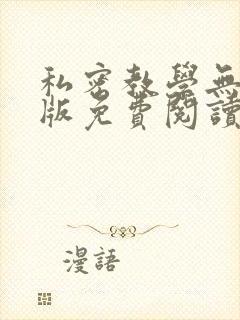 私密教學無
版免費閱讀
漫語